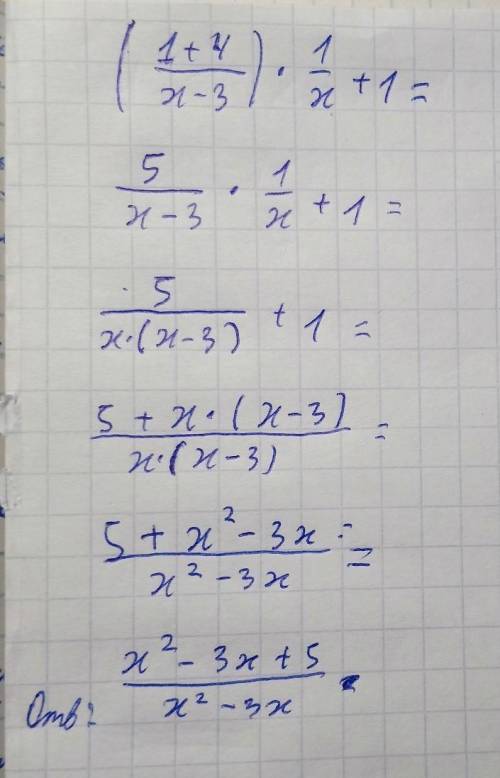 (1+4/x-3) · 1/x + 1 =
5/x-3 · 1/x + 1 =
5/x·(x-3) + 1 =
5+x·(x-3)/x·(x-3) =
5+x²-3x/x²-3x =
Отв: x²-3x+5/x²-3x.